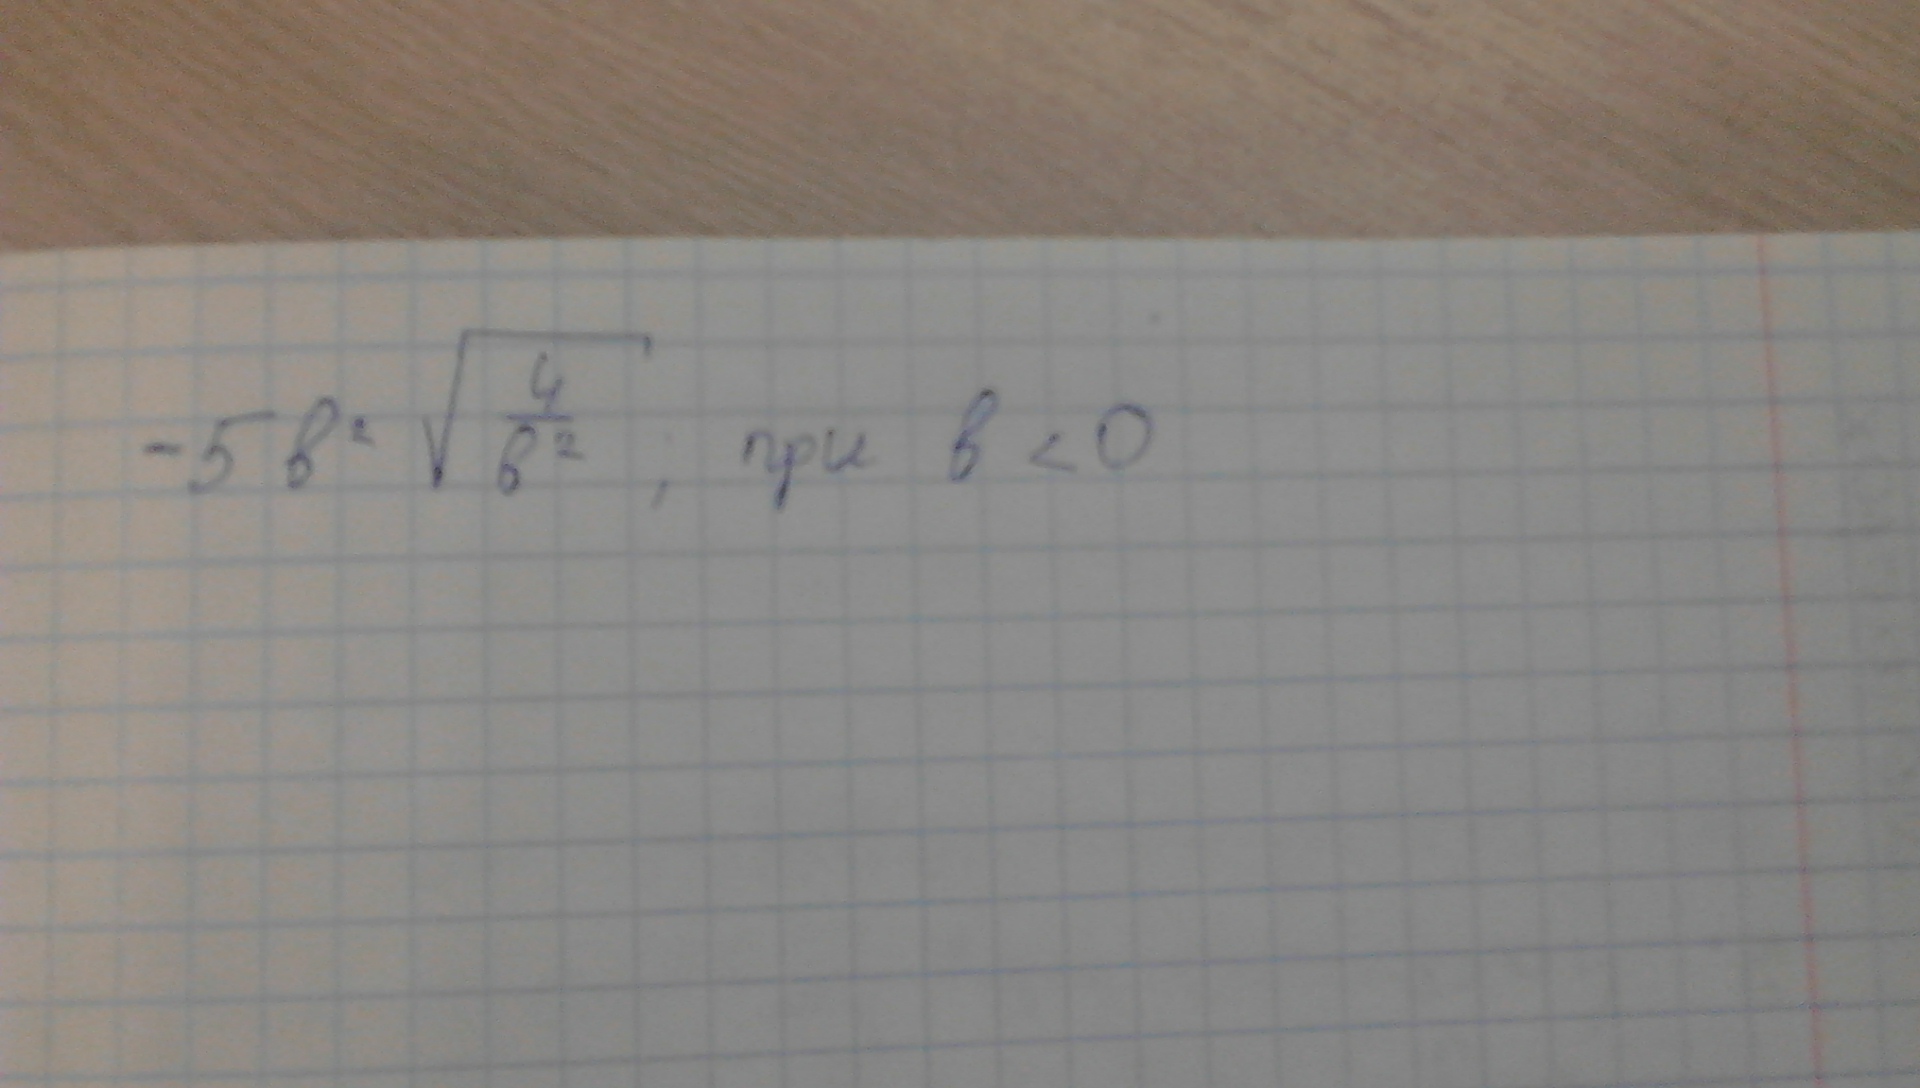 -5в² √(4/в²), при в < 0